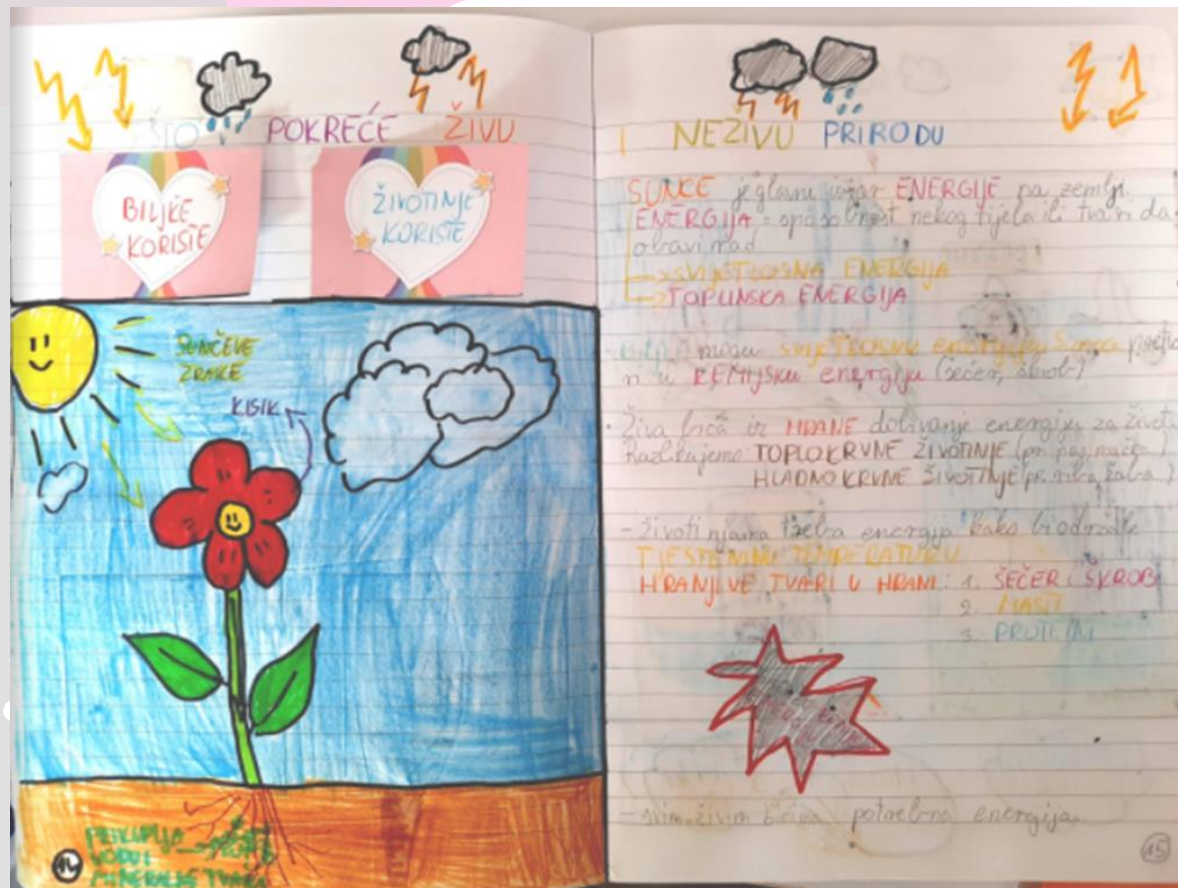 ŠTO POKREĆE ŽIVU
BILJKE
KORISTE
ŽIVOTINJE
KORISTE
SUNČEVE
ZRAKE
KISIK
PRIKUPLJA
VODU I
MINERALNE TVARI
14
I NEŽIVU PRIRODU
SUNCE je glavni izvor ENERGIJE na zemlji
ENERGIJA = sposobnost nekog tijela ili tvari da
obavi rad
SVJETLOSNA ENERGIJA
TOPLINSKA ENERGIJA
mogu SVJETLOSNU energiju Sunca
u KEMIJSKU energiju (šećer, škrob)
Živa bića iz HRANE dobivanje energiju za život
Razlikujemo: TOPLOKRVNE ŽIVOTINJE (pr. pas, mačka)
HLADNOKRVNE ŽIVOTINJE (pr. riba, žaba)
- životinjama treba energija kako bi održale
TJELESNU TEMPERATURU
HRANJIVE TVARI U HRANI: 1. ŠEĆER I ŠKROB
2. MASTI
3. PROTEINI
- svim živim bićima potrebna energija
15